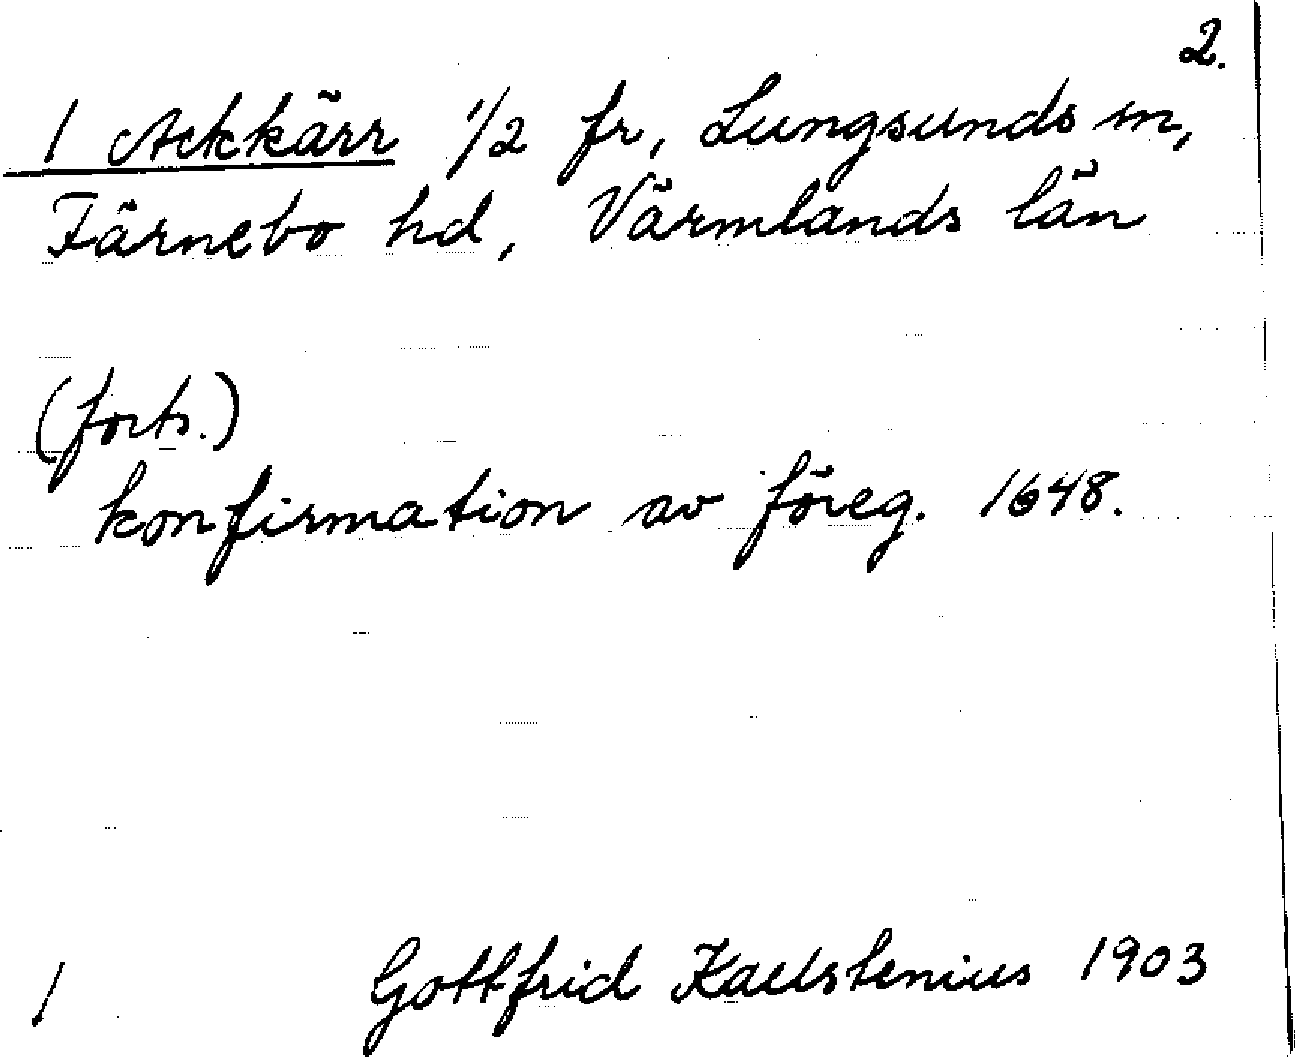 2.
1 Ackkärr 1/2 fr, Lungsunds sn,
Färnebo hd, Värmlands län
(forts.)
konfirmation av föreg. 1648.
1 Gottfrid Kallstenius 1903